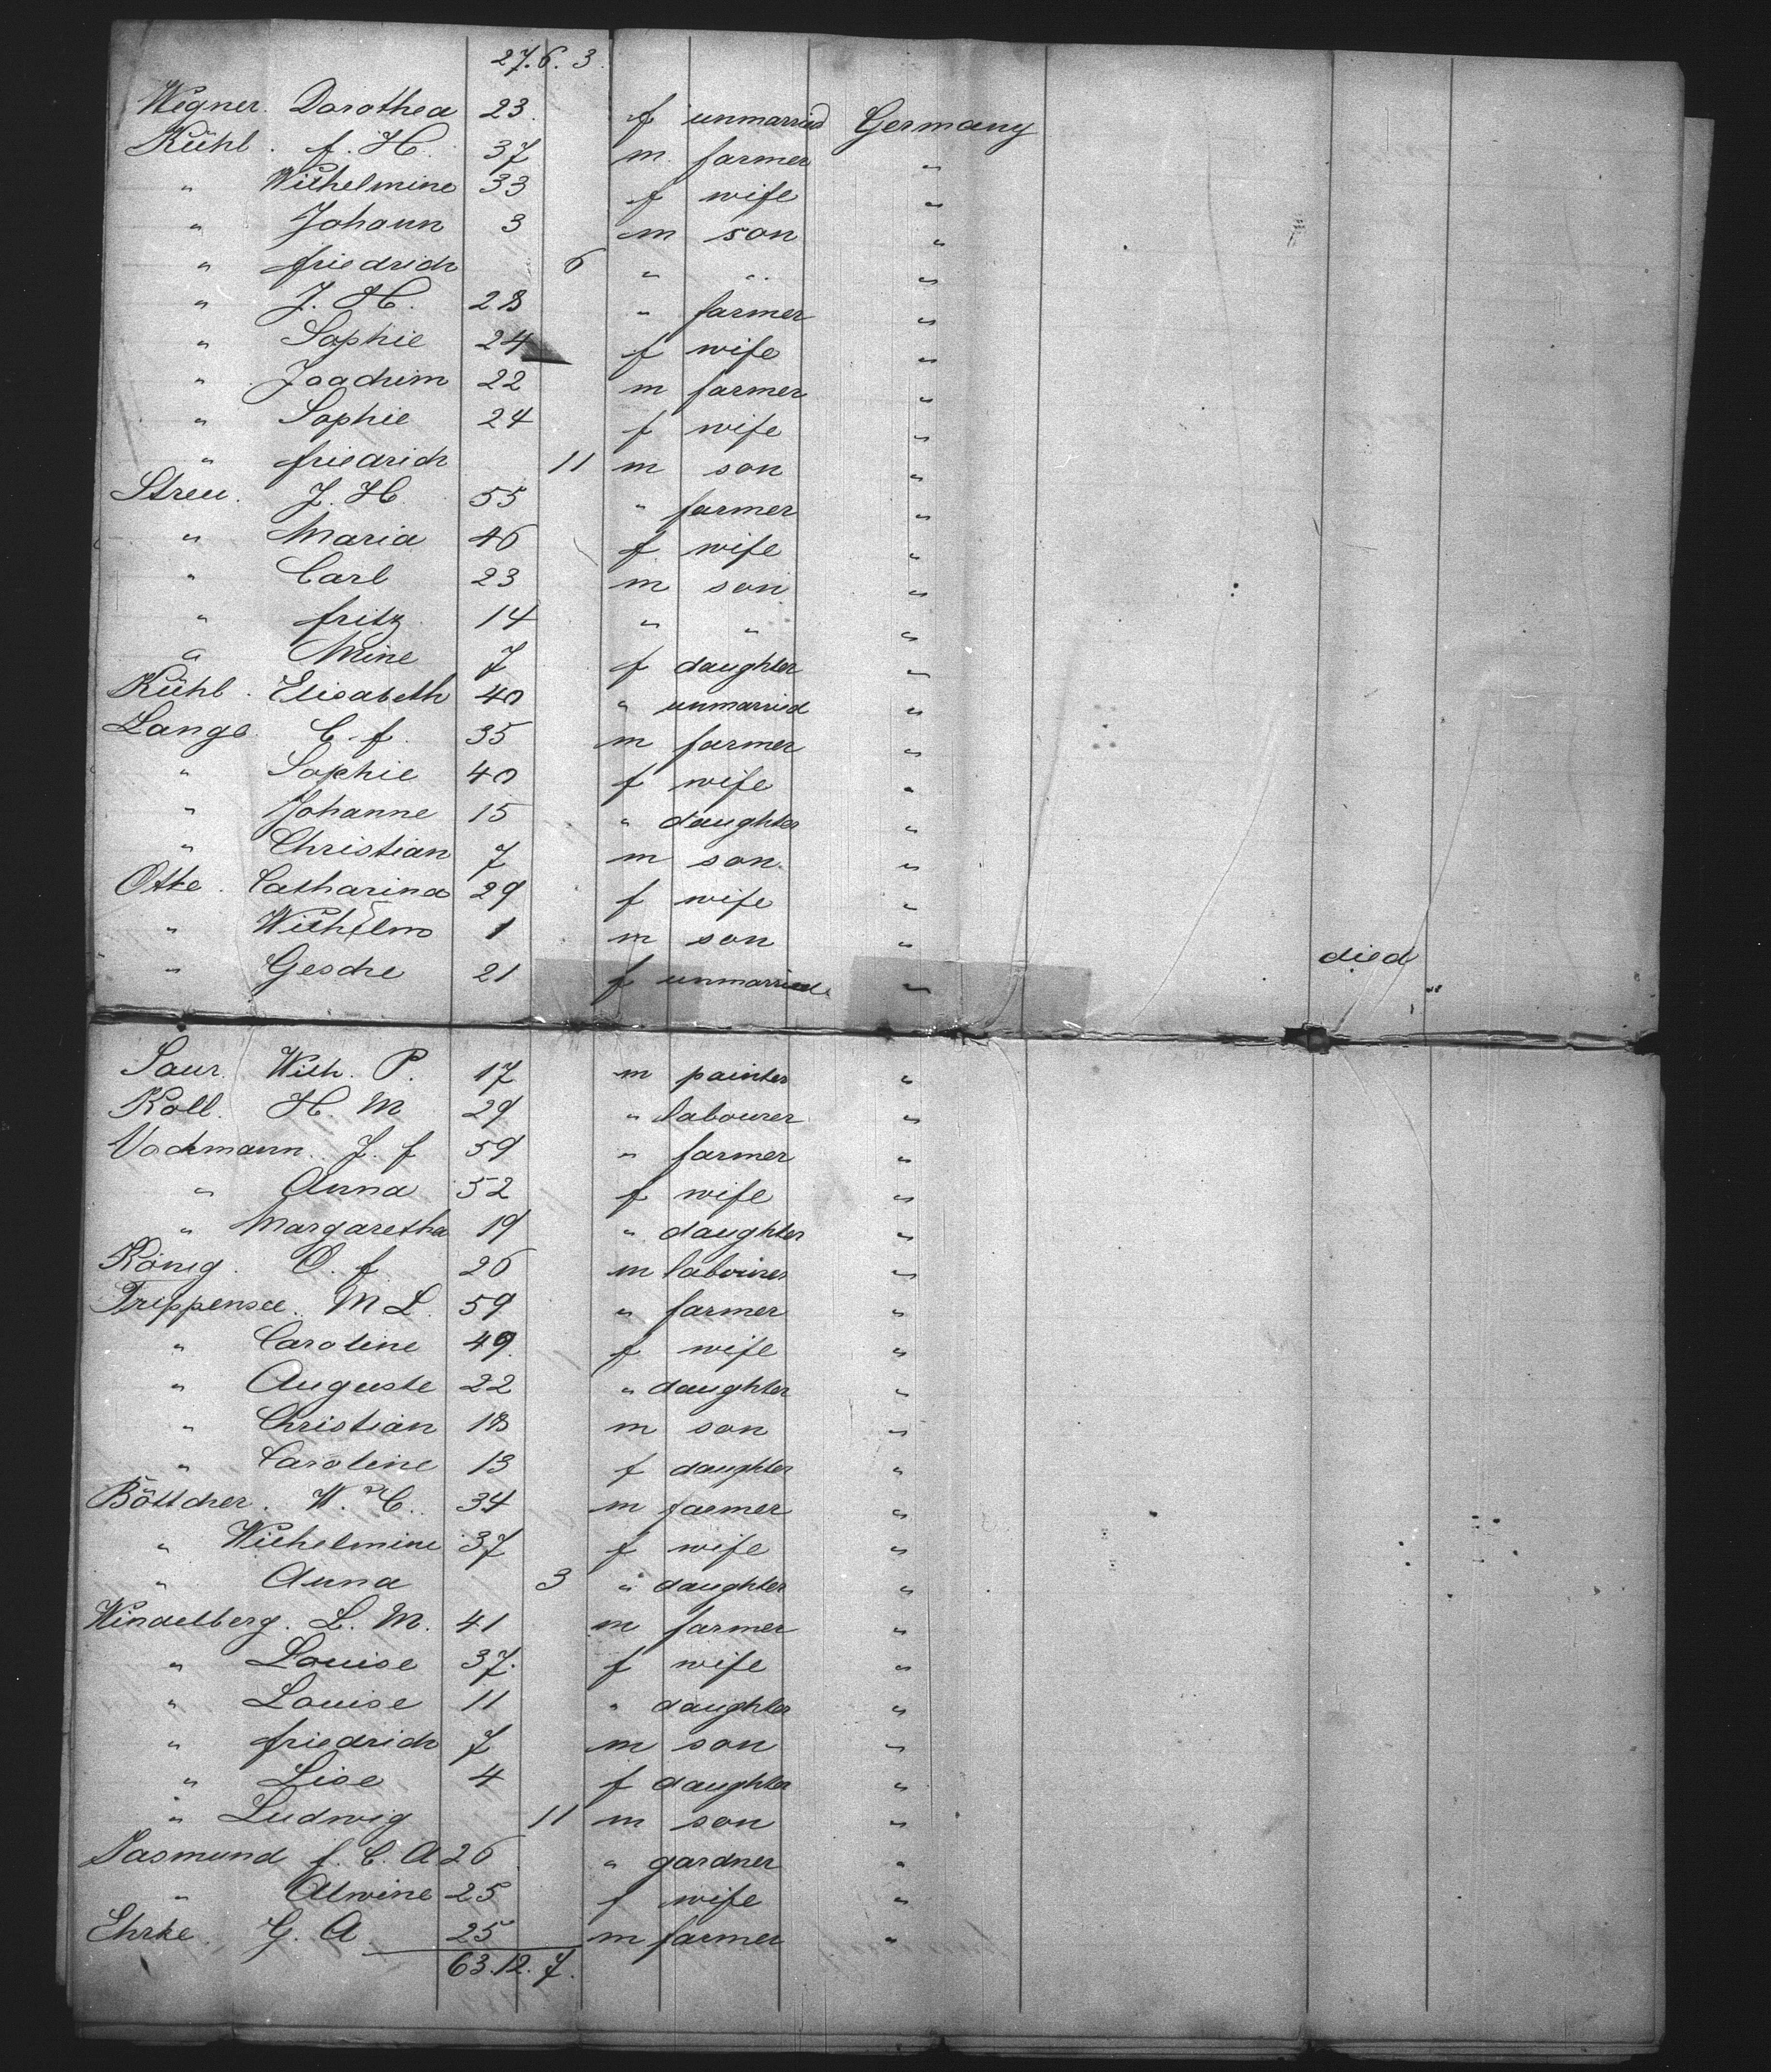 27. 6. 3.
Wegner. Dorothea 23. f unmarried Germany
Kühl. f. H. 37 m farmer "
" Wilhelmine 33 f wife "
" Johann 3 m son "
" friedrich 6 " " "
" J. H. 28 " farmer "
" Sophie 24 f wife "
" Joachim 22 m farmer "
" Sophie 24 f wife "
" friedrich 11 m son "
Streu. J. H. 55 " farmer "
" Maria 46 f wife "
" Carl 23 m son "
" fritz 14 " " "
" Mine 7 f daughter "
Kühl. Elisabeth 40 " unmarried "
Lange. C. f. 35 m farmer "
" Sophie 40 f wife "
" Johanne 15 " daughter "
" Christian 7 m son. "
Otke. Catharina 29 f wife "
" Wilhelm 1 m son " died
" Gesche 21 f unmarried " "
Saur. Wilh. P. 17 m painter "
Koll. H. M 29 " labourer "
Vochmann. J. f 59 " farmer "
" Anna 52 f wife "
" Margaretha 19 " daughter "
König. O. f. 26 m labourer "
Trippensee. M L. 59 " farmer "
" Caroline 49. f wife "
" Auguste 22 " daughter "
" Christian 18 m son "
" Caroline 13 f daughter "
Böttcher. W. C. 34 m farmer "
" Wilhelmine 37 f wife "
" Anna 3 " daughter "
Windelberg. L. M. 41 m farmer "
" Louise 37. f wife "
" Louise 11 " daughter "
" friedrich 7 m son "
" Lise 4 f daughter "
" Ludwig 11 m son "
Jasmund f. C. A 26 " gardner "
" Alwine 25 f wife "
Ehrke. G. A 25 m farmer "
63. 12. 7.